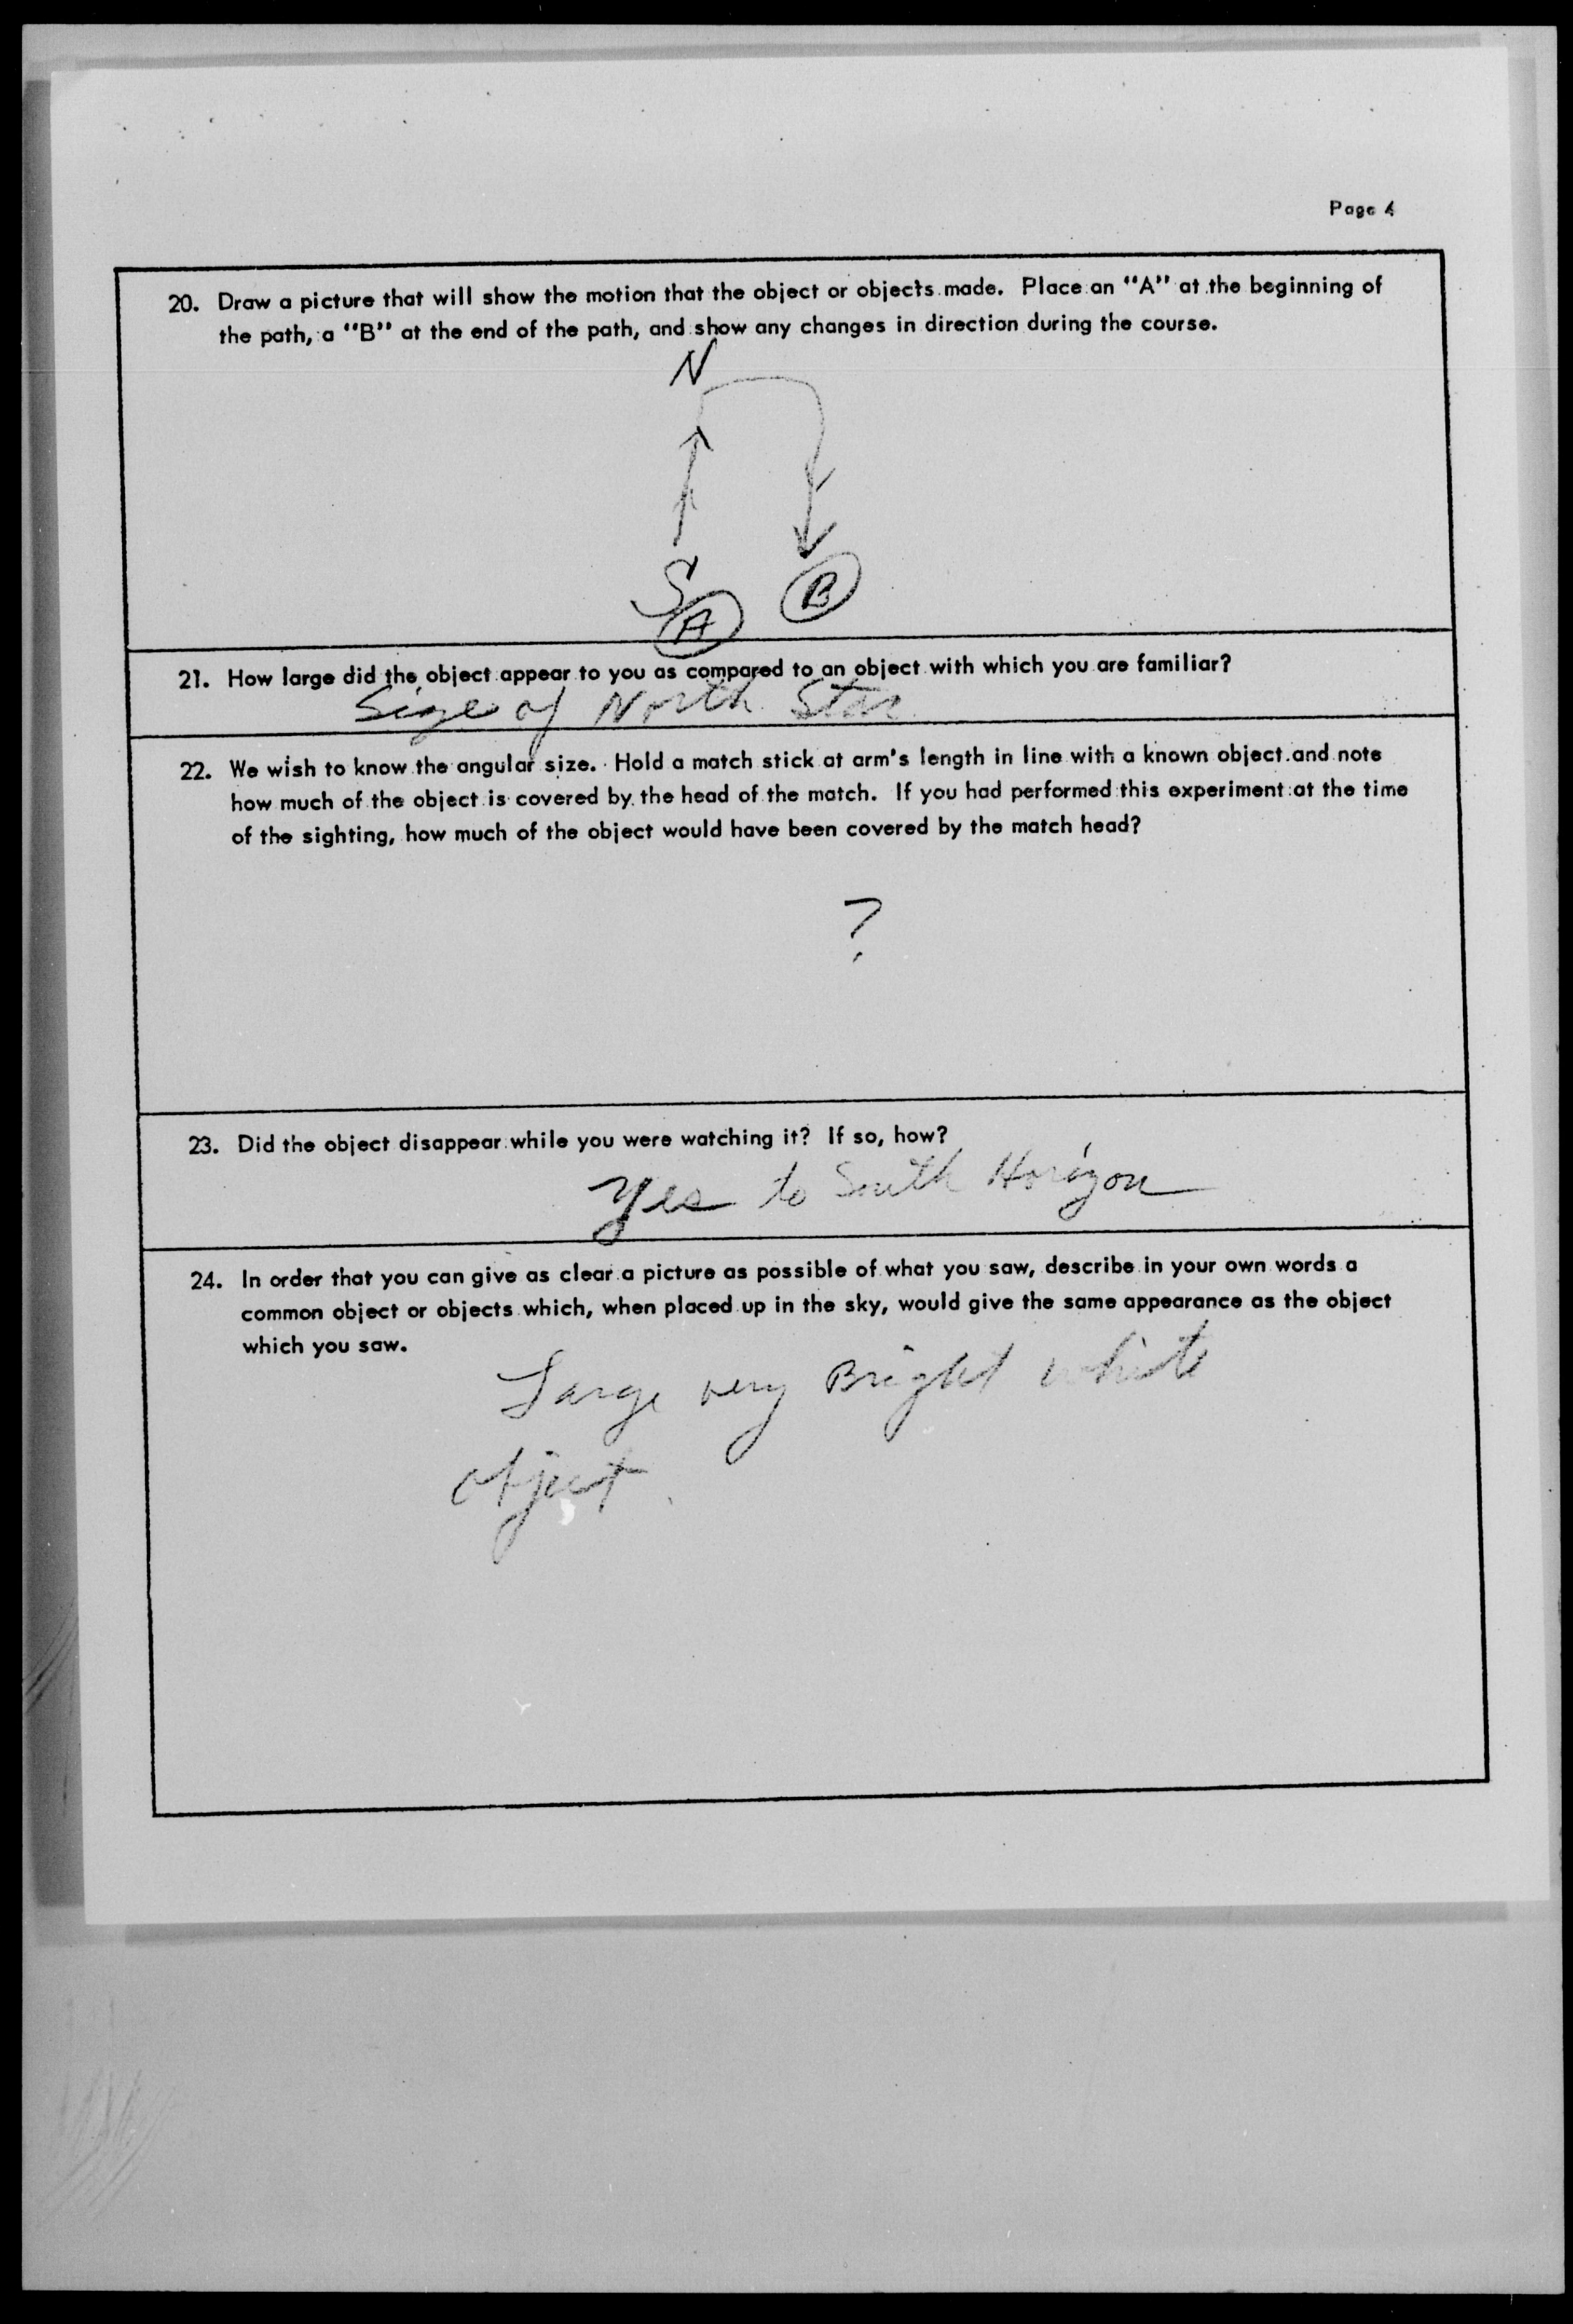 Page 4
20. Draw a picture that will show the motion that the object or objects made. Place an "A" at the beginning of
the path, a "B" at the end of the path, and show any changes in direction during the course.
N
S
A
B
21. How large did the object appear to you as compared to an object with which you are familiar?
Size of North Star
22. We wish to know the angular size. Hold a match stick at arm's length in line with a known object and note
how much of the object is covered by the head of the match. If you had performed this experiment at the time
of the sighting, how much of the object would have been covered by the match head?
?
23. Did the object disappear while you were watching it? If so, how?
Yes to South Horizon
24. In order that you can give as clear a picture as possible of what you saw, describe in your own words a
common object or objects which, when placed up in the sky, would give the same appearance as the object
which you saw.
Large very Bright white
object.